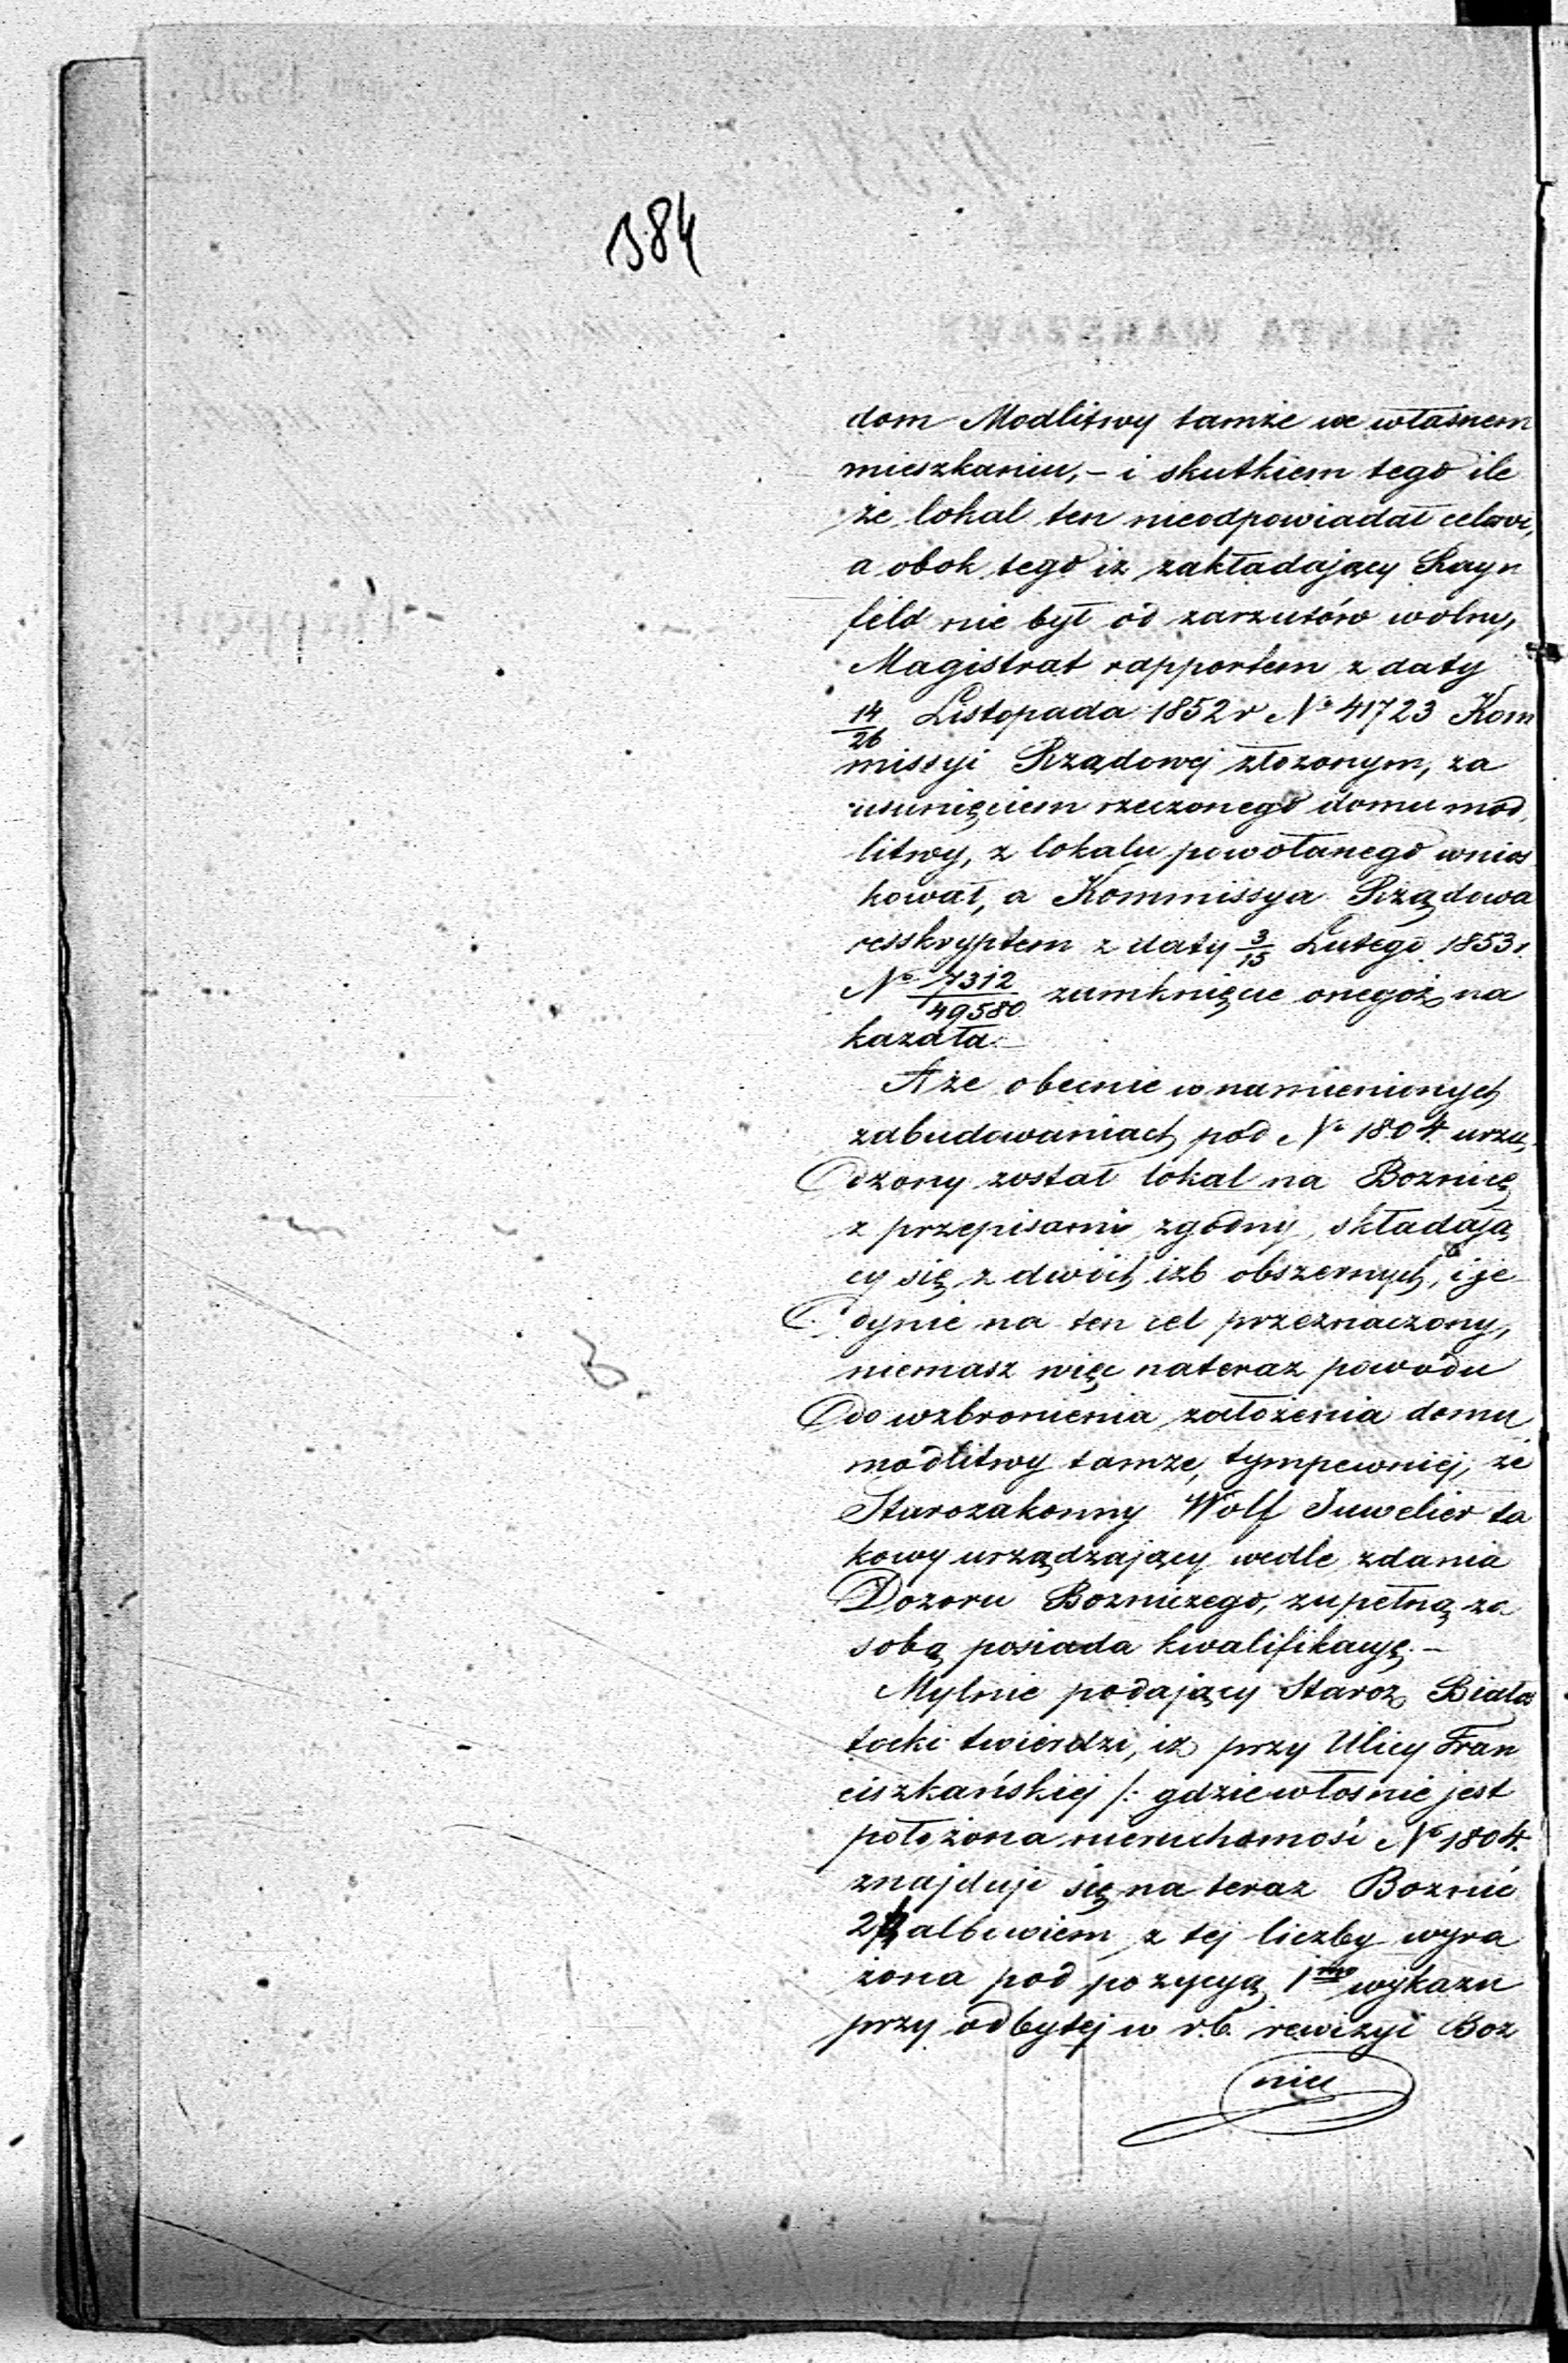 384
dom Modlitwy tamże we własnem
mieszkaniu, – i skutkiem tego ile
że lokal ten nieodpowiadał celowi,
a obok tego iż zakładający Rayn
feld nie był od zarzutów wolny,
Magistrat rapportem z daty
14/26 Listopada 1852 r № 41723 Kom
missyi Rządowej złożonym, za
usunięciem rzeczonego domu mod,
litwy, z lokalu powołanego wnios
kował, a Kommissya Rządowa
resskryptem z daty 3/15 Lutego 1853 r.
№ 7312/49580 zamknięcie onegoż na
kazała. –
A że obecnie w namienionych
zabudowaniach pod № 1804. urzą,
dzony został lokal na Boznicę
z przepisami zgodny, składają
cy się z dwóch izb obszernych, i je
dynie na ten cel przeznaczony,
niemasz więc nateraz powodu
do wzbronienia założenia domu
modlitwy tamże, tympewniej, że
Starozakonny Wolf Juwelier ta
kowy urządzający wedle zdania
Dozoru Bozniczego, zupełną za
sobą posiada kwalifikacyę. –
Mylnie podający Staroz Białos
tocki twierdzi, iż przy Ulicy Fran
ciszkańskiej /: gdzie właśnie jest
położona nieruchomość № 1804.
znajduje się na teraz Boznic
albowiem z tej liczby wyra
żona pod pozycyą 1mo wykazu
przy odbytej w r.b. rewizyi Boz
nic